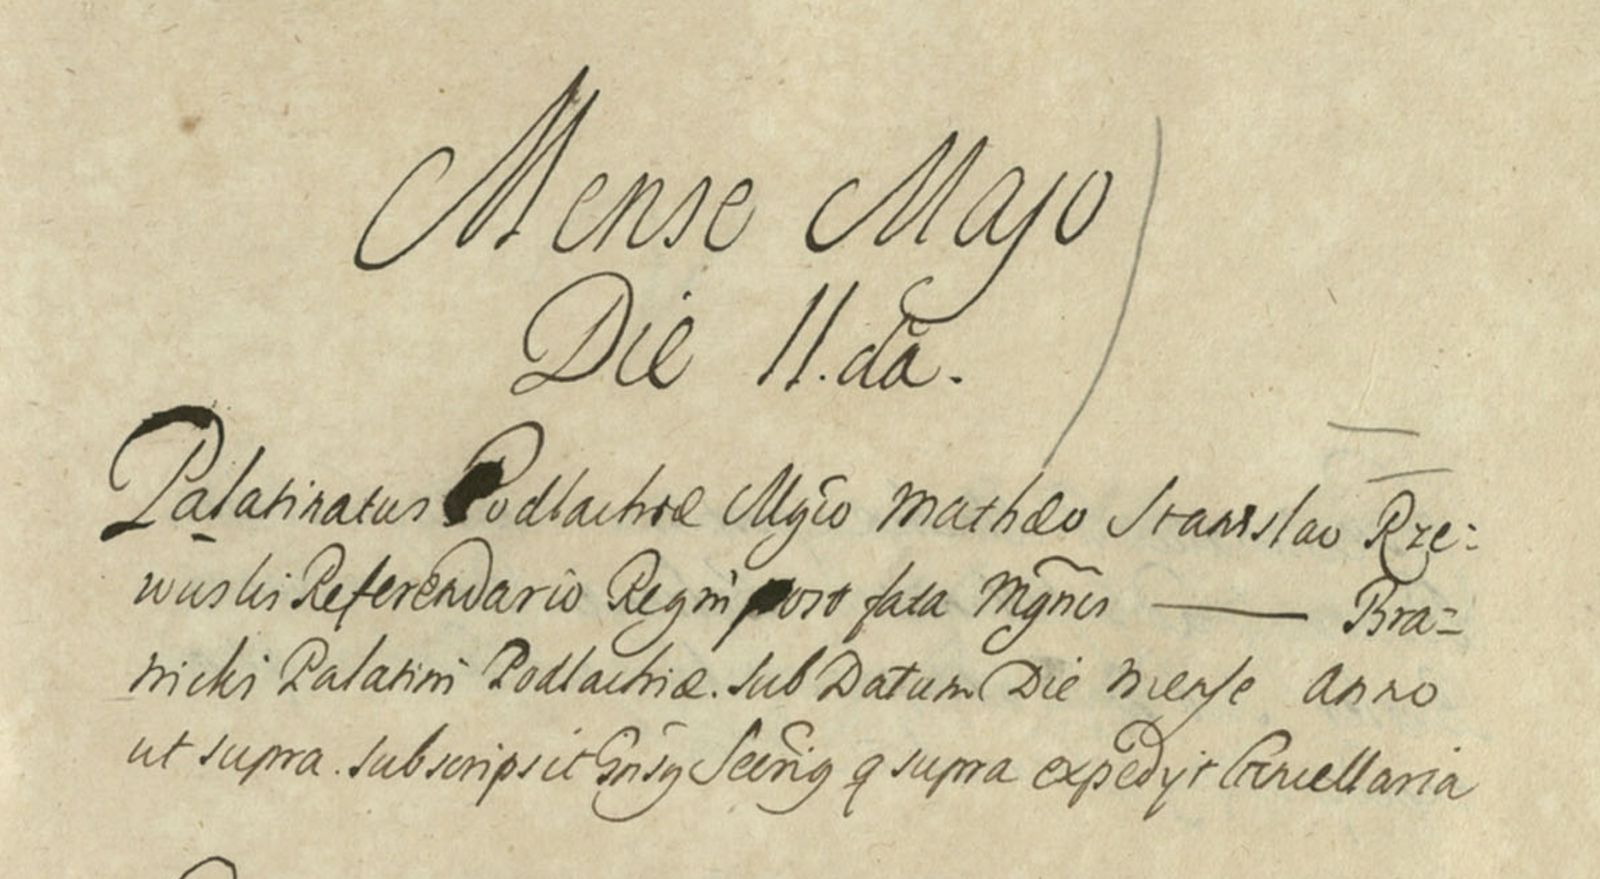 Mense Majo
Die 11.da.
Palatinatus Podlachiæ Mgco Mathæo Stanislao Rze=
wuski Referendario Regni post fata Mgnci — Bra=
nicki Palatini Podlachiæ. Sub Datum Die Mense Anno
ut supra. Subscripsit q supra expedyt Cancellaria